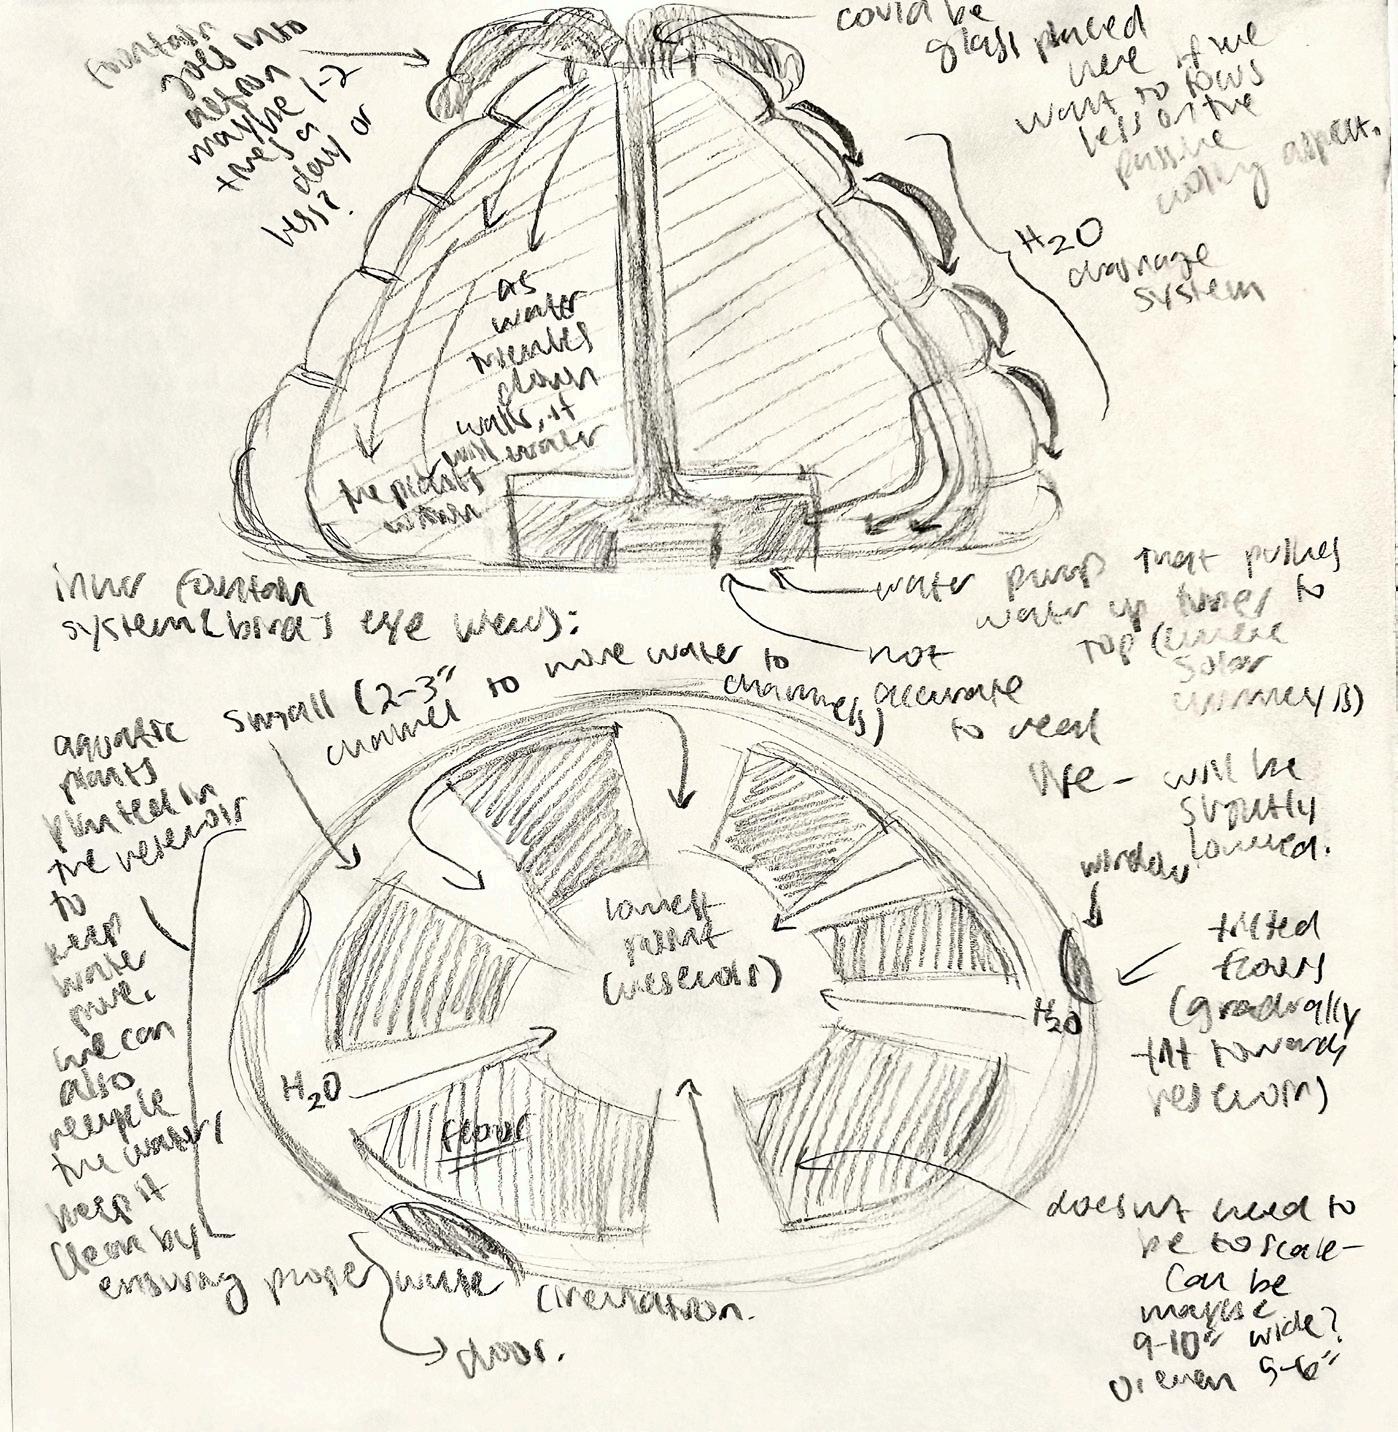 fountain
goes into
action
maybe 1-2
times a
day or
less?
could be
glass placed
here if we
want to focus
less on the
passive
cooling aspect.
H2O
drainage
system
as
water
trickles
down
walls, it
will water
the plants
within
water pump that pushes
water up tubes to
top (where
solar
chimney is)
not
accurate
to real
life - will be
slightly
lowered.
inner fountain
system (bird's eye view):
small (2-3"
channel to move water to
channels)
aquatic
plants
planted in
the reservoir
to
keep
water
pure.
we can
also
recycle
the water/
keep it
clean by
ensuring proper water circulation.
window
lowest
point
(reservoir)
tilted
floors
(gradually
tilt towards
reservoir)
H2O
H2O
floor
doesn't need to
be to scale-
can be
maybe
9-10" wide?
or even 5-6"
door.